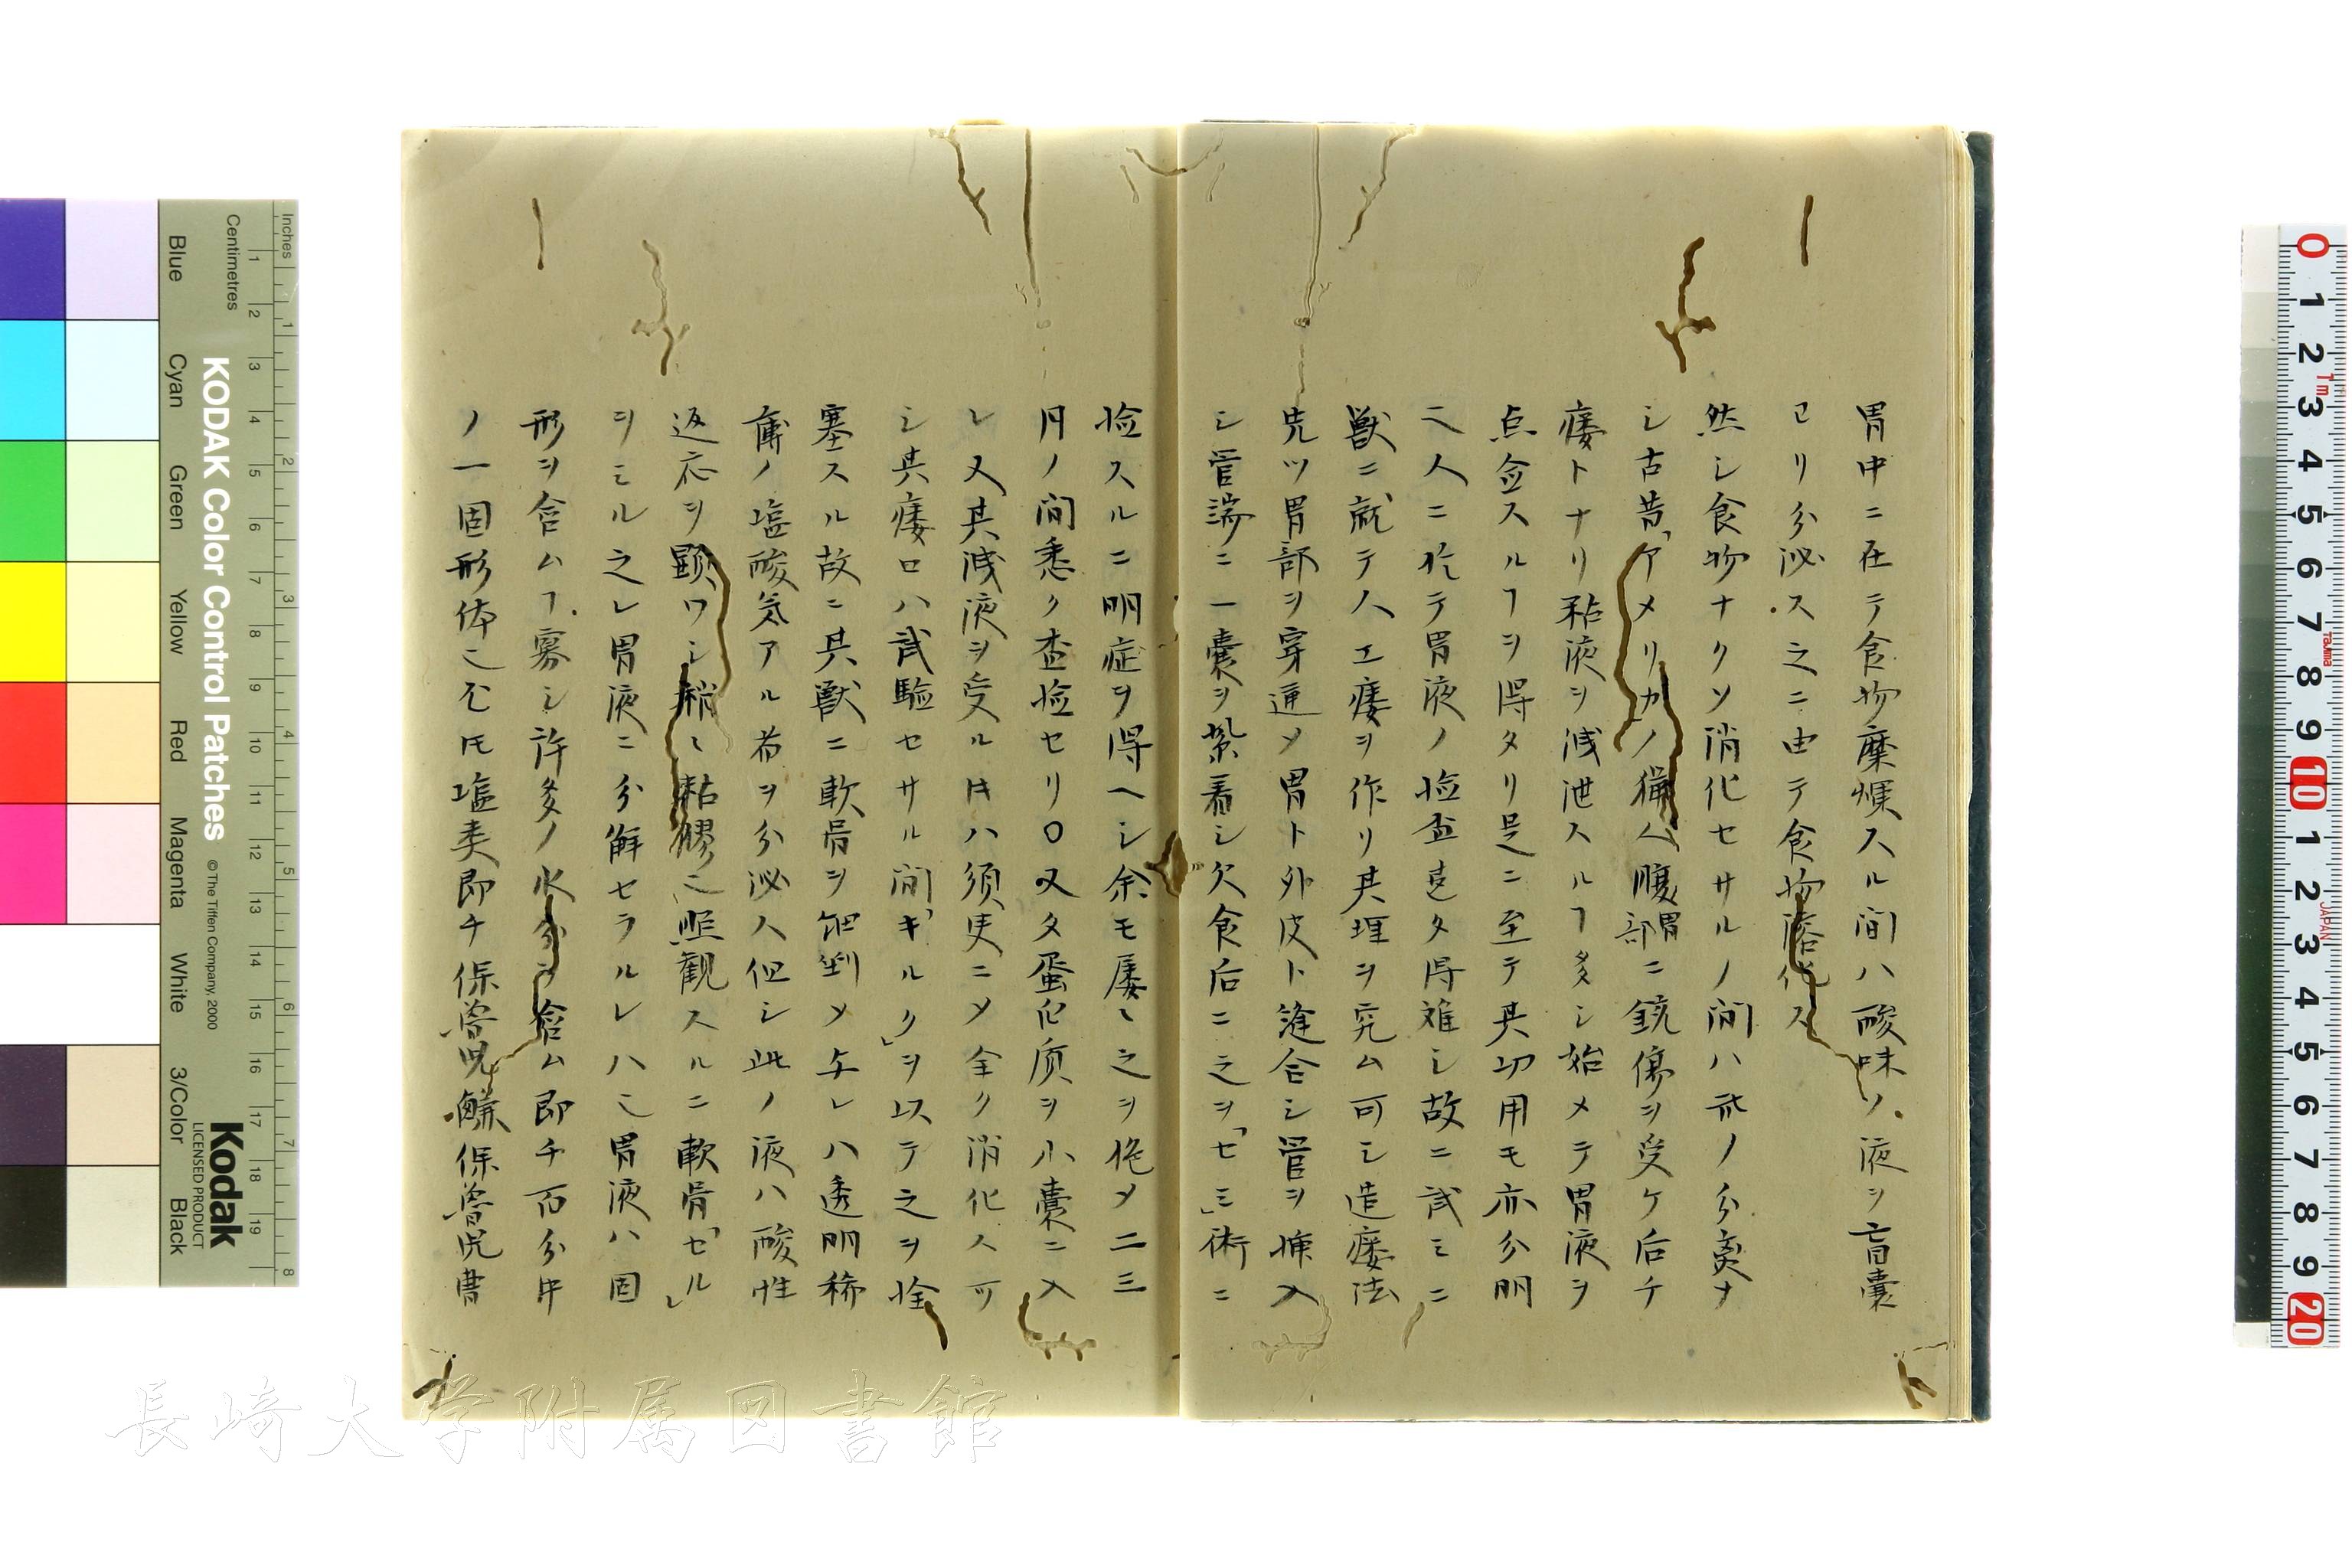 胃中ニ在テ食物糜爛スル間ハ酸味ノ液ヲ盲嚢
ヨリ分泌ス之ニ由テ食物溶化ス
然シ食物ナクソ消化セサルノ間ハ此ノ分離ナ
シ古昔「アメリカノ猟人腹胃部ニ銃傷ヲ受ケ后チ
瘻トナリ粘液ヲ洩泄スルヿ多シ始メテ胃液ヲ
点検スルヿヲ得タリ是ニ至テ其功用モ亦分明
ニ人ニ於テ胃液ノ検査克タ得難シ故ニ試ミニ
獣ニ就テ人工瘻ヲ作リ其理ヲ究ム可シ造瘻法
先ツ胃部ヲ穿通メ胃ト外皮ト縫合シ管ヲ挿入
シ管端ニ一嚢ヲ紮着シ欠食后ニ之ヲ「セミ」術ニ
検スルニ明症ヲ得ヘシ余モ屡々之ヲ施メ二三
月ノ間悉ク査検セリ〇又タ蛋白质ヲ小嚢ニ入
レ又其洩液ヲ受ル片ハ須臾ニメ全ク消化ス可
シ其瘻口ハ試驗セサル間「キルク」ヲ以テ之ヲ栓
塞スル故ニ其獣ニ軟骨ヲ細剉メ与レハ透明稀
薄ノ塩酸気アル者ヲ分泌ス但シ此ノ液ハ酸性
返応ヲ顕ワシ稍々粘膠ニ照観スルニ軟骨「セル」
ヲミル之レ胃液ニ分解セラルレハ也胃液ハ固
形ヲ含ムヿ寡シ許多ノ水分ヲ含ム即チ百分中
ノ一固形体ニ〆圧塩类即チ保魯児鹻保魯児曹